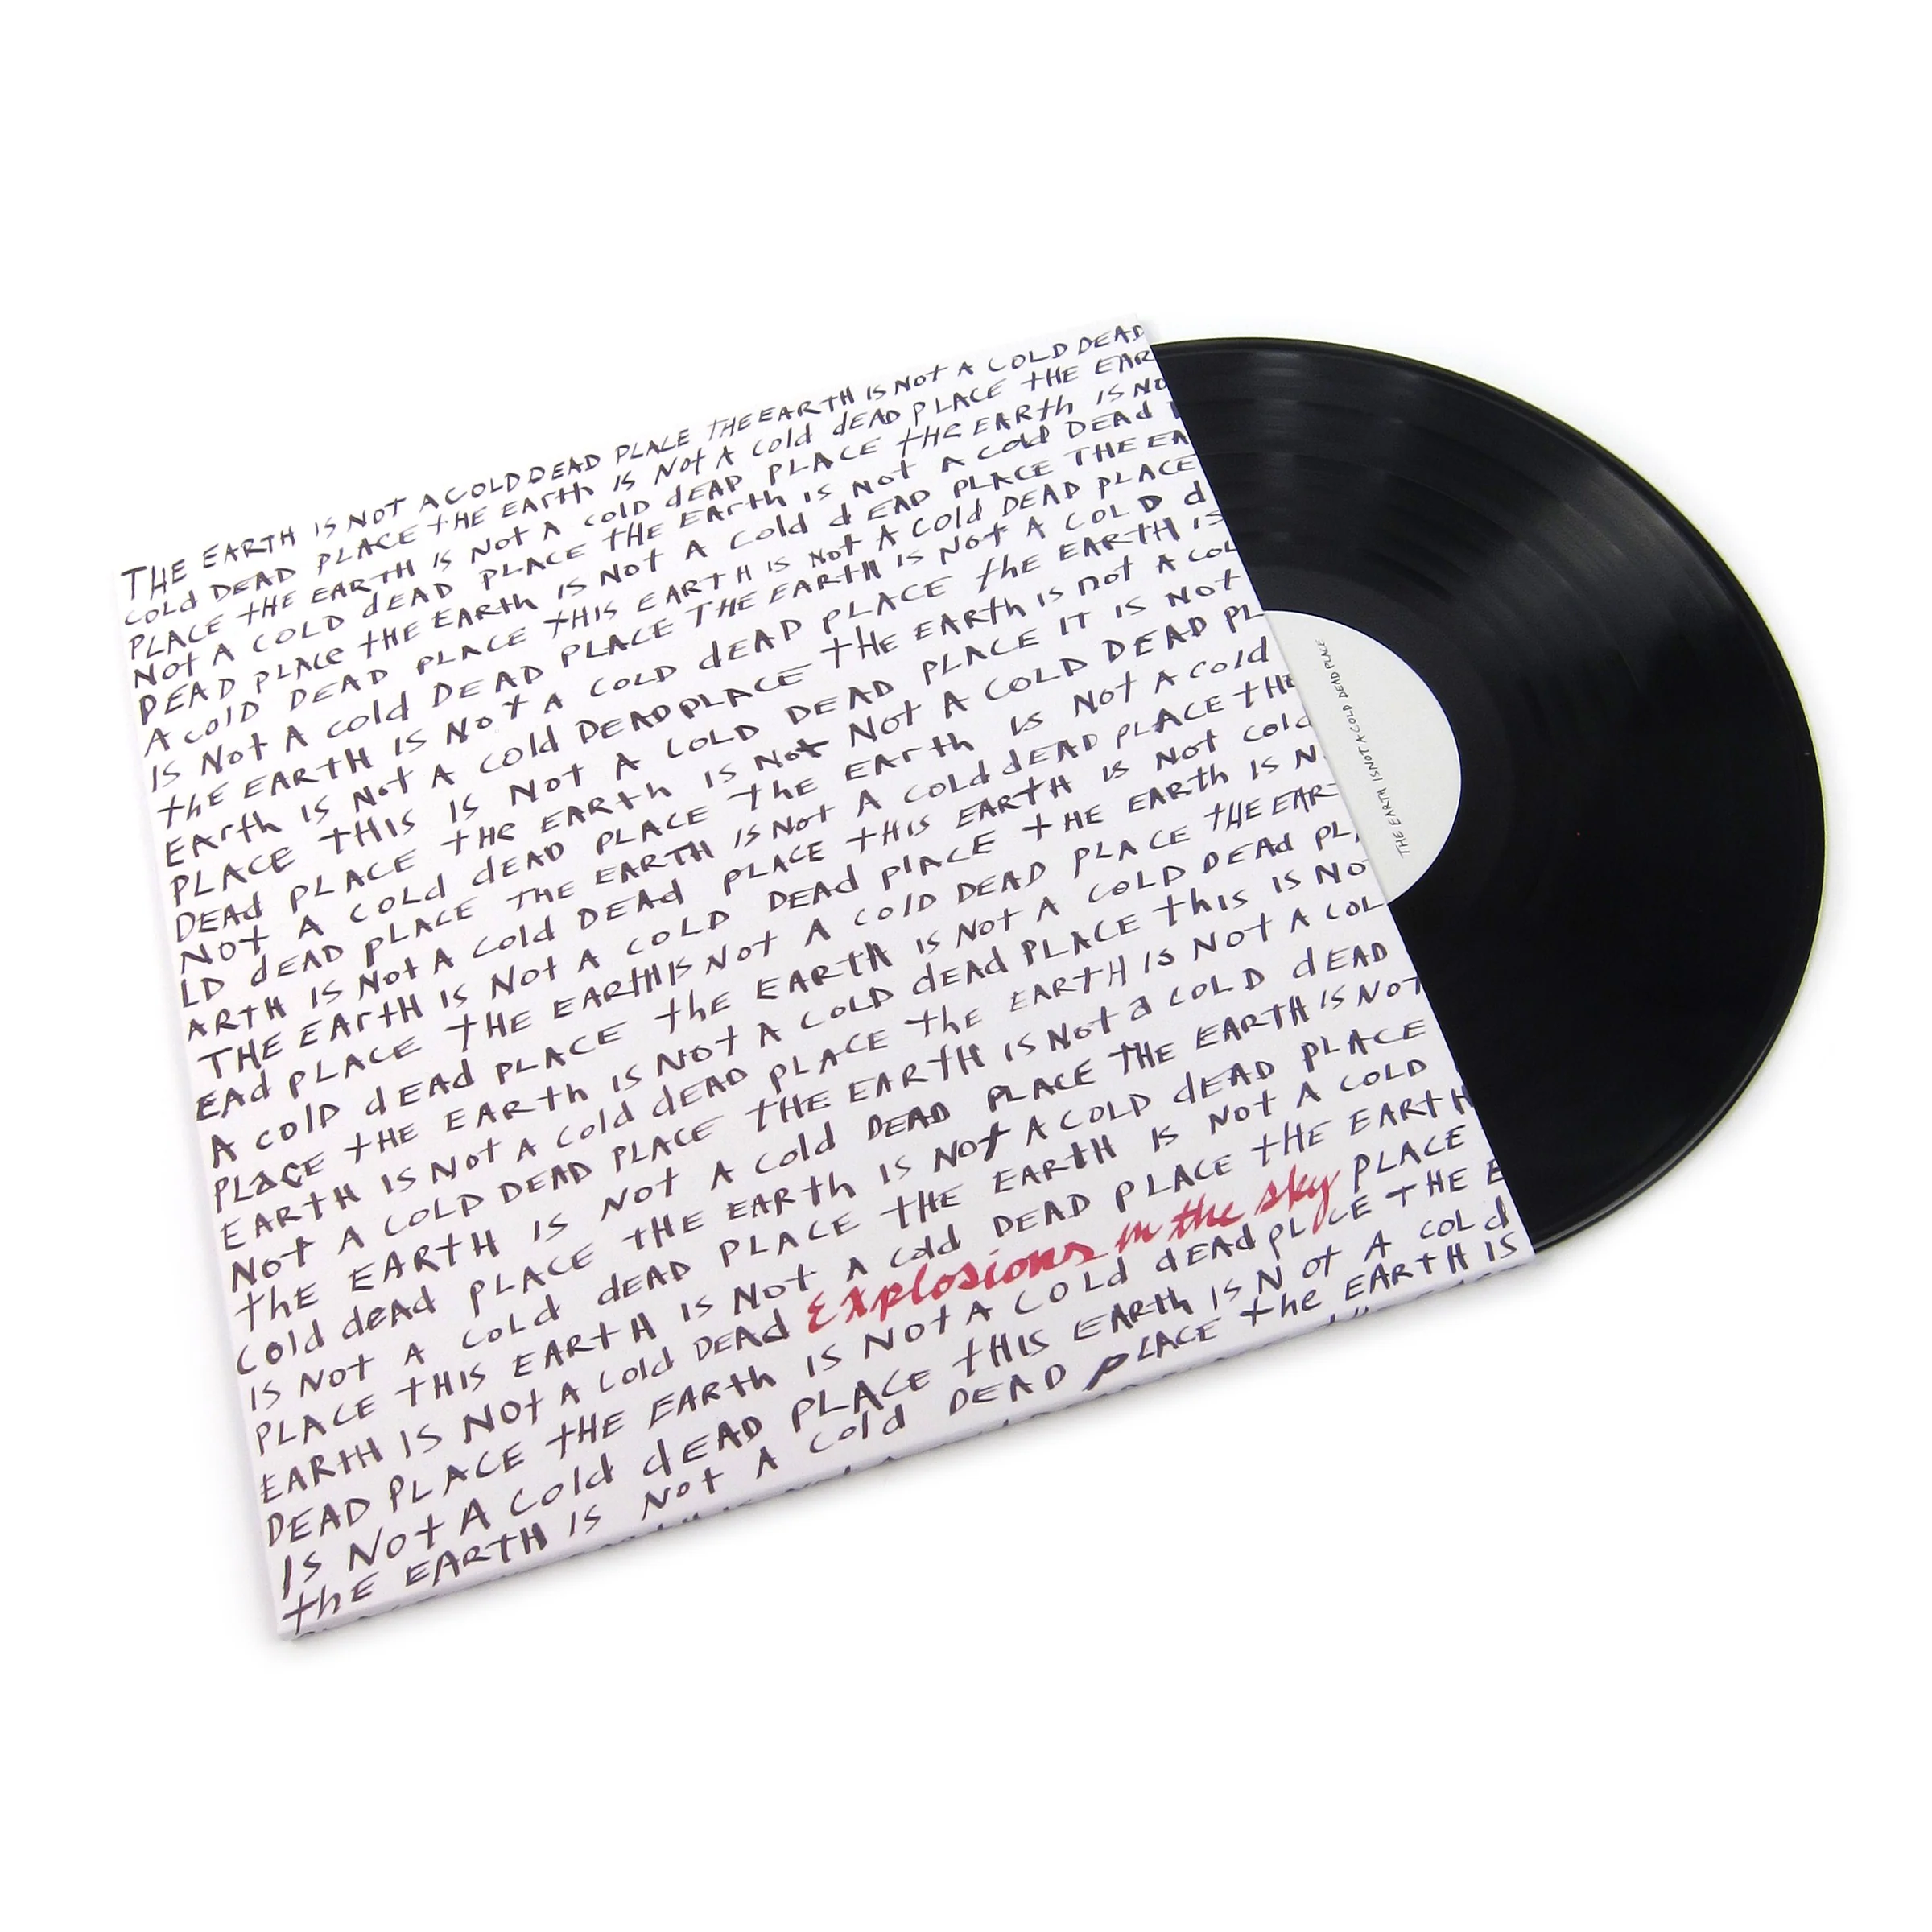 THE EARTH IS NOT A COLD DEAD PLACE THE EARTH IS NOt A COLD DEAD
COLd DEAD PLACE tHE EARth IS Not A Cold dEAD PLACE tHE EAR
PLACE tHE EARtH IS Not A Cold DEAD PLACE tHE EARth IS NO
Not A COLD dEAD PLACE tHE EARth IS Not A Cold DEAd
DEAD PLACe tHE EARth IS NOT A Cold dEAD PLACE THE EA
A ColD DEAD PLACE tHIS EARtH IS Not A Cold DEAD PLACE
IS Not A Cold DEAD PLACE THE EARtH IS Not A COLD d
thE EARtH IS NOt A COLD dEAD PLACE thE EARTH IS
EARth IS Not A Cold DEAD PLACE tHE EARth IS not A COL
PLACE tHIS IS NOt A COLD DEAD PLACE IT IS NOt
DEAd PLACE tHE EARth IS Not NOt A COLD DEAD PL
NOt A COLd dEAD PLACE The EARth IS NOt A Cold
LD dEAD pLACE THE EARTH IS Not A Cold dEAD PLACE tHE
ARTH IS Not A Cold DEAd PLACE tHIS EARtH IS NOt COLd
THE EARtH IS Not A COLD DEAd PlACE tHE EARth IS N
EAd PLACE tHE EARtH IS NOt A COlD DEAD PLACE tHE EAR
A ColD dEAd PLACE thE EARtH IS Not A COLD DEAd PL
PLaCE tHE EARth IS NOt A COLD dEAd PLACE this IS NO
EARTH IS Not A Cold dEAD PLACE thE EARTH IS NOt A COL
Not A COLD DEAD PLACE tHE EARtH IS Not a COLD dEAD
thE EARtH IS NOt A Cold DEAD PLACE tHE EARTH IS NOT
Cold dEAd PLACE tHE EARth IS NOt A COLD dEAD PLACE
IS NOt A COLD dEAD PLACE tHE EARtH IS NOt A COLD
PLACE tHIS EARtH IS NOt A Cold DEAD PLACE tHE EARtH
EARtH IS NOt A Cold DEAD Explosions in the sky PLACE
DEAD PLACE tHE EARth IS NOt A COLd dEAd PLACE tHE E
IS NOt A Cold dEAD PLACE tHIS EARth IS NOt A COLd
thE EARtH IS NOt A Cold DEAD PLACE the EARtH IS
THE EARTH IS NOT A COLD DEAD PLACE